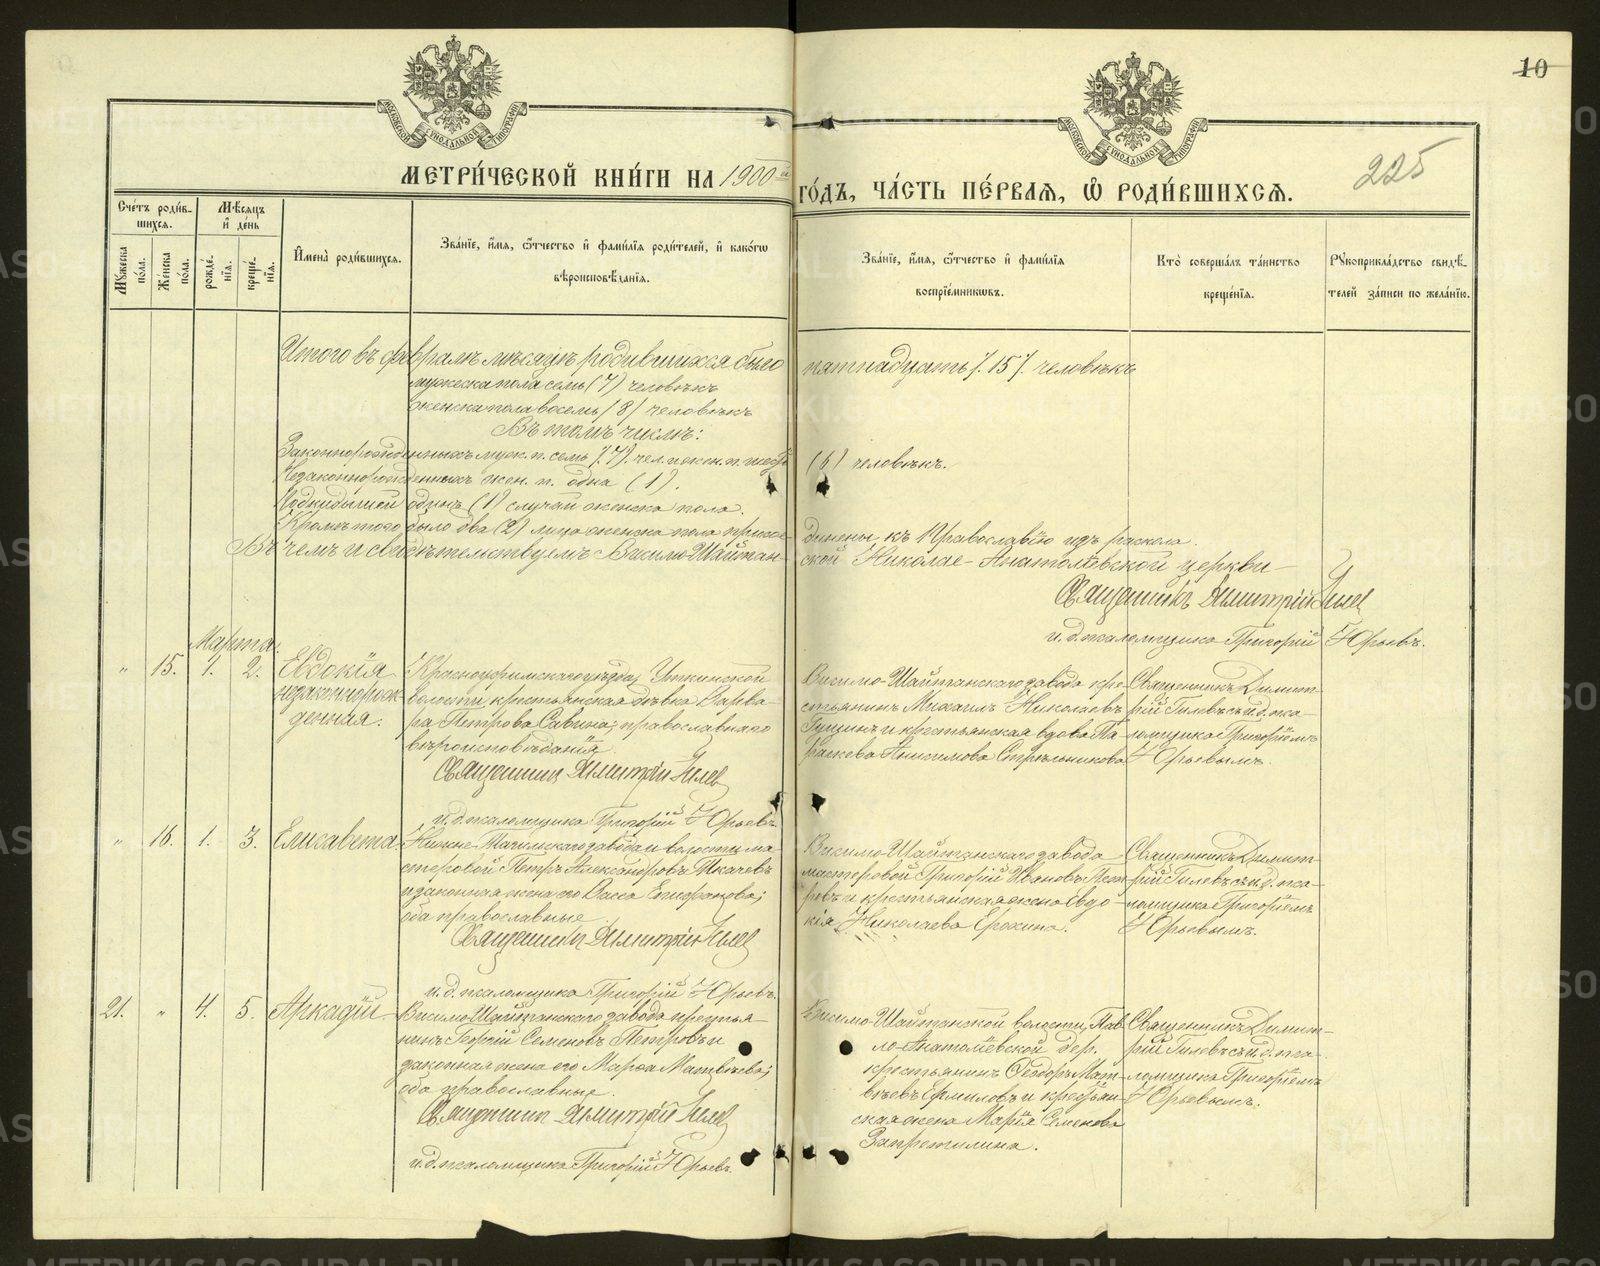 10
225
МЕТРИ́ЧЕСКОЙ КНИ́ГИ НА 1900й ГО́ДЪ, ЧА́СТЬ ПЕ́РВАѦ, Ѽ РОДИ́ВШИХСѦ.
МОСКОВСКОЙ СѴНОДАЛЬНОЙ ТИПОГРАФІИ
МОСКОВСКОЙ СѴНОДАЛЬНОЙ ТИПОГРАФІИ
Сче́тъ роди́вшихсѧ.
Мꙋ́жеска по́ла.
Же́нска по́ла.
Мѣ́сѧцъ и҆ де́нь
рожде́нїѧ.
креще́нїѧ.
И҆мена̀ роди́вшихсѧ.
Зва́нїе, и҆́мѧ, ѻ҆́тчество и҆ фами́лїѧ роди́телей, и҆ како́гѡ
вѣроисповѣ́данїѧ.
Зва́нїе, и҆́мѧ, ѻ҆́тчество и҆ фами́лїѧ
воспрїе́мникѡвъ.
Кто̀ соверша́лъ та́инство
креще́нїѧ.
Рꙋкоприкла́дство свидѣ́-
телей за́писи по жела́нїю.
Итого въ февралѣ мѣсяцѣ родившихся было пятнадцать /. 15 /. человѣкъ
мужеска пола семь (7) человѣкъ
женска пола восемь (8) человѣкъ
Въ томъ числѣ:
Законнорожденныхъ муж. п. семь /. 7 /. чел. и жен. п. шесть (6) человѣкъ.
Незаконнорожденныхъ жен. п. одна (1).
Подкидышей одинъ (1) случай женска пола.
Кромѣ того было два (2) лица женска пола присоединены къ Православію изъ раскола.
Въ чемъ и свидѣтельствуемъ Висимо-Шайтанской Николае-Анатоліевской церкви
Священникъ Димитрій Гилев
и. д. псаломщика Григорій Юрьевъ.
Марта.
„ 15. 1. 2. Евдокія
незаконнорож-
денная.
Красноуфимскаго уѣзда, Уткинской
волости, крестьянская дѣвка Варва-
ра Петрова Савина, православнаго
вѣроисповѣданія.
Священник Димитрій Гилев
и. д. псаломщика Григорій Юрьевъ.
Висимо-Шайтанскаго завода кре-
стьянинъ Михаилъ Николаевъ
Гущинъ и крестьянская вдова Па-
раскева Анисимова Стрѣльникова
Священникъ Димит-
рій Гилевъ съ и. д. пса-
ломщика Григоріемъ
Юрьевымъ.
„ 16. 1. 3. Елисавета
Нижне-Тагильскаго завода и волости ма-
стеровой Петръ Александровъ Ткачевъ
и законная жена его Васса Епифанова;
оба православные.
Священникъ Димитрій Гилев
и. д. псаломщика Григорій Юрьевъ.
Висимо-Шайтанскаго завода
мастеровой Григорій Ивановъ Пет-
ровъ и крестьянская жена Евдо-
кія Николаева Ерохина.
Священникъ Димит-
рій Гилевъ съ и. д. пса-
ломщика Григоріемъ
Юрьевымъ.
21. „ 4. 5. Аркадій
Висимо-Шайтанскаго завода крестья-
нинъ Георгій Семеновъ Петровъ и
законная жена его Марѳа Матвѣева;
оба православные.
Священник Димитрій Гилев
и. д. псаломщика Григорій Юрьевъ.
Висимо-Шайтанской волости, Пав-
ло-Анатоліевской дер.
крестьянинъ Ѳеодоръ Мат-
вѣевъ Ермиловъ и крестьян-
ская жена Марія Семенова
Запретилина.
Священникъ Димит-
рій Гилевъ съ и. д. пса-
ломщика Григоріемъ
Юрьевымъ.